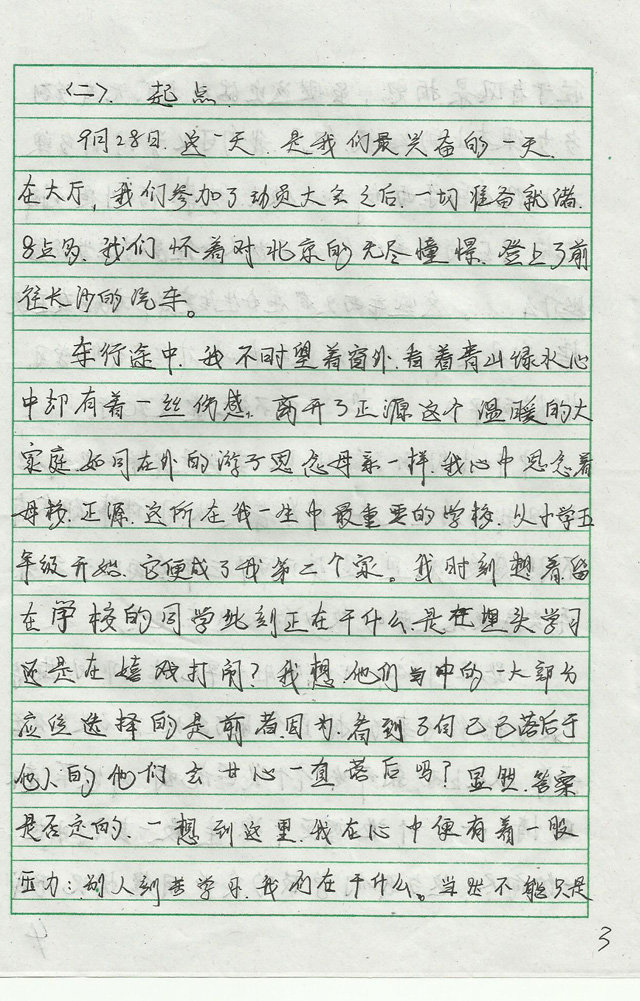 <二>. 起点.
9月28日.这一天.是我们最兴奋的一天.
在大厅,我们参加了动员大会之后.一切准备就绪.
8点多.我们怀着对北京的无尽憧憬.登上了前
往长沙的汽车。
车行途中.我不时望着窗外.看着青山绿水心
中却有着一丝伤感。离开了正源这个温暖的大
家庭.如同在外的游子思念母亲一样.我心中思念着
母校.正源.这所在我一生中最重要的学校.从小学五
年级开始.它便成了我第二个家。我时刻想着.留
在学校的同学此刻正在干什么.是在埋头学习
还是在嬉戏打闹?我想.他们当中的一大部分
应该选择的是前者.因为.看到了自己已落后于
他人的他们会甘心一直落后吗?显然.答案
是否定的.一想到这里.我在心中便有着一股
压力:别人刻苦学习.我们在干什么。当然不能只是
3
4